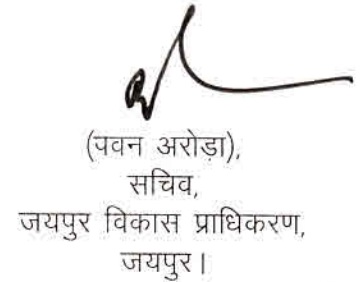 (पवन अरोड़ा),
सचिव,
जयपुर विकास प्राधिकरण,
जयपुर।